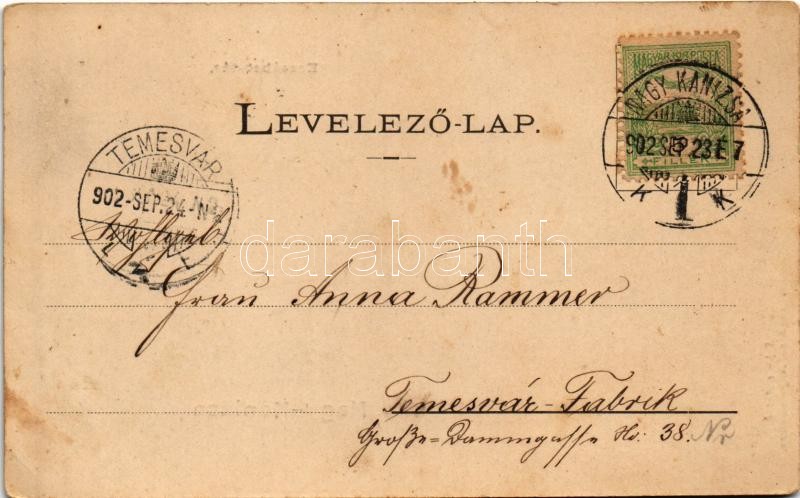 MAGYAR KIR. POSTA
NAGY KANIZSA
902 SEP. 23 E 7
LEVELEZŐ-LAP.
TEMESVÁR
902-SEP. 24-N
darabanth
Frau Anna Rammer
Temesvár-Fabrik
Große-Dammgasse No: 38. Nr